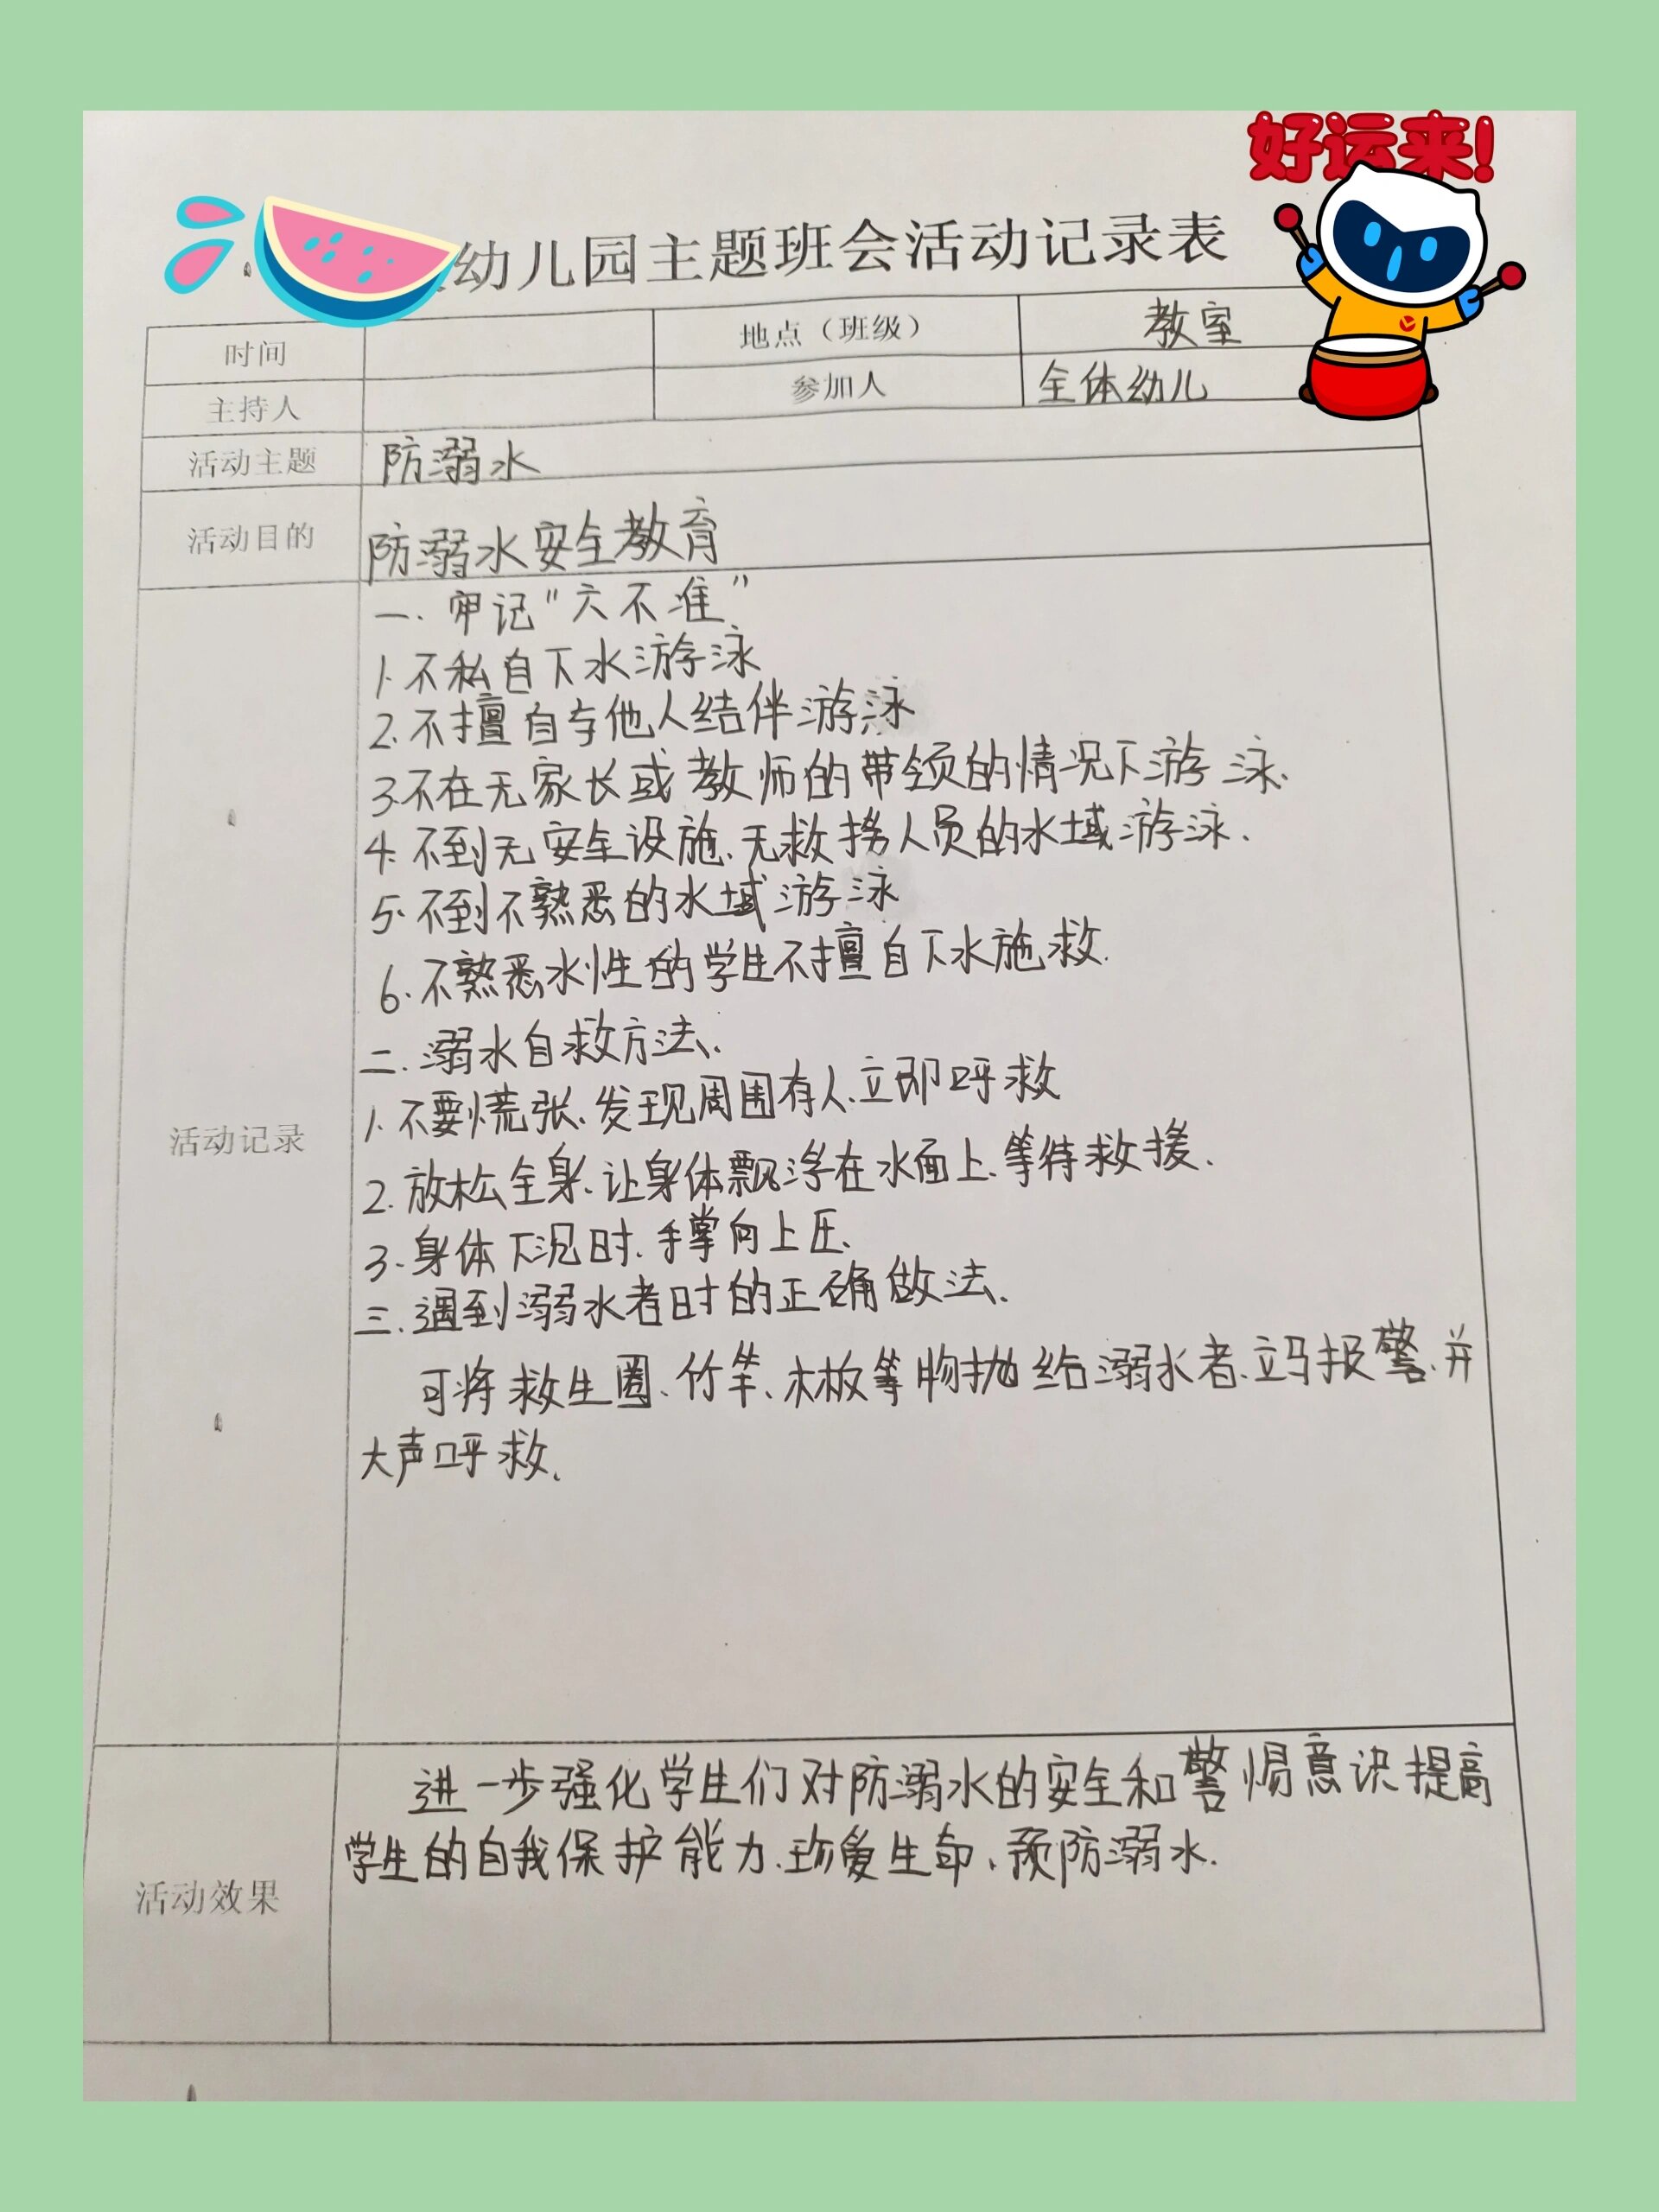 好运来!
幼儿园主题班会活动记录表
时间 地点（班级） 教室
主持人 参加人 全体幼儿
活动主题 防溺水
活动目的 防溺水安全教育
一.牢记“六不准”
1.不私自下水游泳
2.不擅自与他人结伴游泳
3.不在无家长或教师的带领的情况下游泳.
4.不到无安全设施、无救捞人员的水域游泳.
5.不到不熟悉的水域游泳
6.不熟悉水性的学生不擅自下水施救.
二.溺水自救方法.
1.不要慌张、发现周围有人、立即呼救
2.放松全身、让身体飘浮在水面上、等待救援.
3.身体下沉时、手掌向上压.
三.遇到溺水者时的正确做法.
活动记录
可将救生圈、竹竿、木板等物抛给溺水者、立马报警、并
大声呼救.
进一步强化学生们对防溺水的安全和警惕意识提高
学生的自我保护能力、珍爱生命、预防溺水.
活动效果